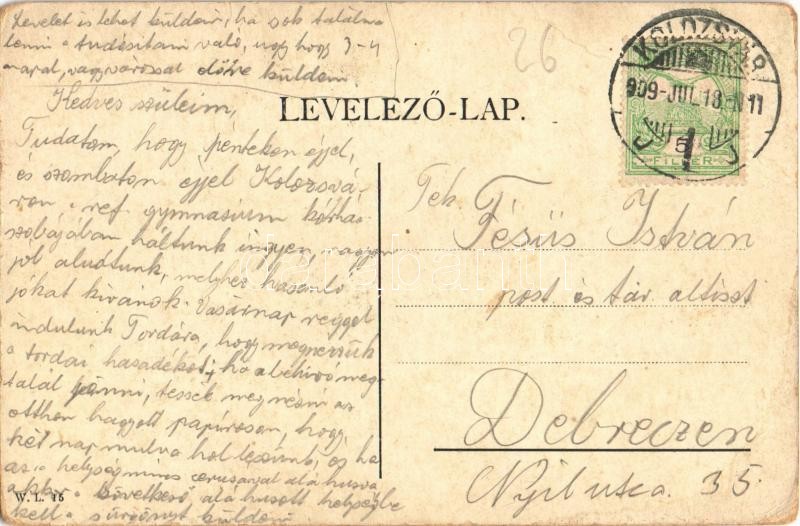 Levelet is lehet küldeni, ha sok találna
lenni a tudósítani való, úgy hogy 3-4
nappal, vagy várossal előre küldeni
Kedves szüleim,
Tudatom, hogy pénteken éjjel,
és szombaton éjjel Kolozsvá-
ron a ref gymnasium kórhá-
szobájában háltunk ingyen, nagyon
jól aludtunk, melyhez hasonló
jókat kívánok. Vasárnap reggel
indulunk Tordára, hogy megnézzük
a tordai hasadékot; ha a behívó meg-
talál jönni, tessék megnézni az
otthon hagyott papíroson, hogy
két nap mulva hol leszünk, és ha
az a helység nincs ceruzával alá húzva
akkor a következő alá húzott helységbe
kell a sürgönyt küldeni
LEVELEZŐ-LAP.
26
KOLOZSVÁR
909-JUL.18.-N11
5
FILLÉR
Tek.
Fésüs István
post és táv altiszt
Debreczen
Nyil utca. 35.
W. L. 15
darabanth